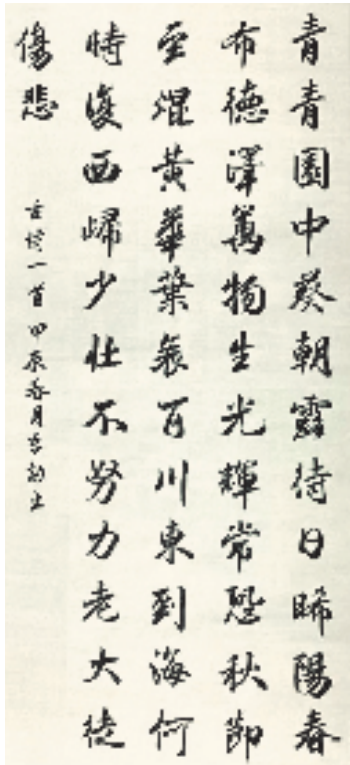 青青園中葵朝露待日晞陽春
布德澤萬物生光輝常恐秋節
至焜黃華葉衰百川東到海何
時復西歸少壯不努力老大徒
傷悲
古詩一首甲辰春月